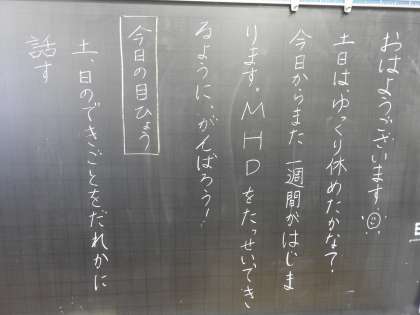 おはようございます☺
土日は、ゆっくり休めたかな?
今日からまた一週間がはじま
ります。MHDをたっせいでき
るように、がんばろう!
今日の目ひょう
土、日のできごとをだれかに
話す